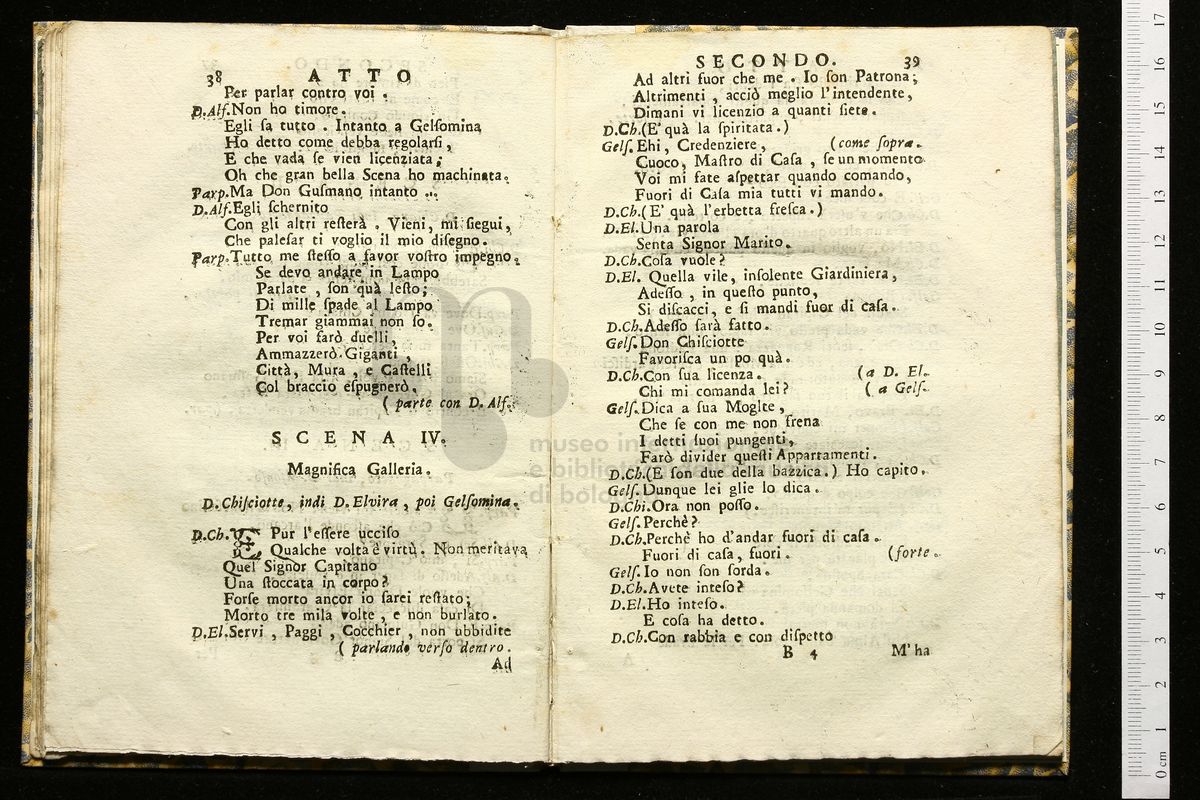 38 ATTO
Per parlar contro voi .
D.Alf.Non ho timore.
Egli ſa tutto . Intanto a Gelſomina
Ho detto come debba regolarſi,
E che vada ſe vien licenziata;
Oh che gran bella Scena ho machinata.
Parp.Ma Don Guſmano intanto ...
D.Alf.Egli ſchernito
Con gli altri reſterà . Vieni, mi ſiegui,
Che paleſar ti voglio il mio diſegno.
Parp.Tutto me ſteſſo a favor voſtro impegno.
Se devo andare in Lampo
Parlate , ſon quà leſto;
Di mille ſpade al Lampo
Tremar giammai non ſo.
Per voi farò duelli,
Ammazzerò Giganti ,
Città, Mura , e Caſtelli
Col braccio eſpugnerò.
( parte con D. Alf.
SCENA IV.
Magnifica Galleria.
D. Chiſciotte, indi D. Elvira , poi Gelſomina.
D.Ch.E Pur l'eſſere ucciſo
Qualche volta è virtù. Non meritava
Quel Signor Capitano
Una ſtoccata in corpo?
Forſe morto ancor io ſarei reſtato;
Morto tre mila volte , e non burlato.
D.El.Servi , Paggi , Cocchier , non ubbidite
( parlando verſo dentro.
Ad
SECONDO. 39
Ad altri fuor che me . Io ſon Patrona;
Altrimenti , acciò meglio l'intendente,
Dimani vi licenzio a quanti ſiete.
D.Ch.(E' quà la ſpiritata.)
Gelſ.Ehi, Credenziere, (come ſopra.
Cuoco, Maſtro di Caſa , ſe un momento
Voi mi fate aſpettar quando comando,
Fuori di Caſa mia tutti vi mando.
D.Ch.( E' quà l'erbetta freſca.)
D.El.Una parola
Senta Signor Marito.
D.Ch.Coſa vuole?
D.El. Quella vile, inſolente Giardiniera,
Adeſſo , in queſto punto,
Si diſcacci, e ſi mandi fuor di caſa.
D.Ch.Adeſſo ſarà fatto.
Gelſ.Don Chiſciotte
Favoriſca un po quà.
D.Ch.Con ſua licenza. (a D. El.
Chi mi comanda lei? ( a Gelſ.
Gelſ.Dica a ſua Moglte,
Che ſe con me non frena
I detti ſuoi pungenti,
Farò divider queſti Appartamenti.
D.Ch.(E ſon due della bazzica.) Ho capito.
Gelſ.Dunque lei glie lo dica.
D.Chi.Ora non poſſo.
Gelſ.Perchè?
D.Ch.Perchè ho d'andar fuori di caſa.
Fuori di caſa, fuori. (forte.
Gelſ.Io non ſon ſorda.
D.Ch.Avete inteſo?
D.El.Ho inteſo.
E coſa ha detto.
D.Ch.Con rabbia e con diſpetto
B 4 M'ha